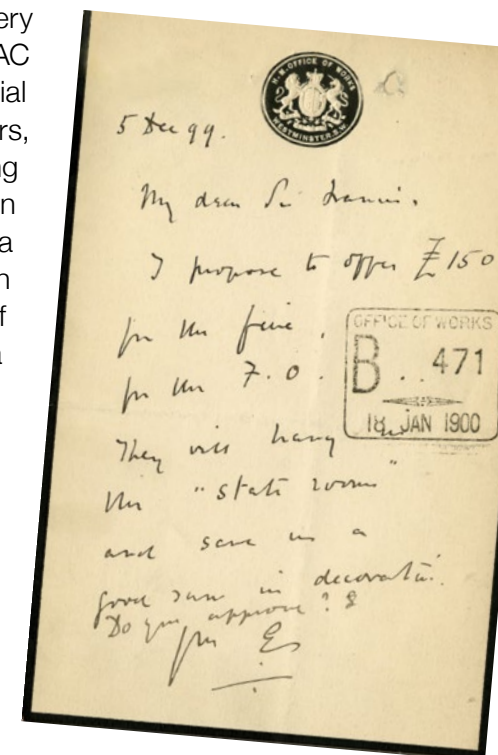 ery
AC
ial
rs,
ng
n
a
n
f
a
H.M. OFFICE OF WORKS
WESTMINSTER. S.W.
5 Dec 99.
My dear Sir Francis.
I propose to offer £150
for the five,
for the F.O.
OFFICE OF WORKS
B .. 471
18 JAN 1900
They will hang
the "state rooms"
and save us a
good sum in decoration.
Do you approve?